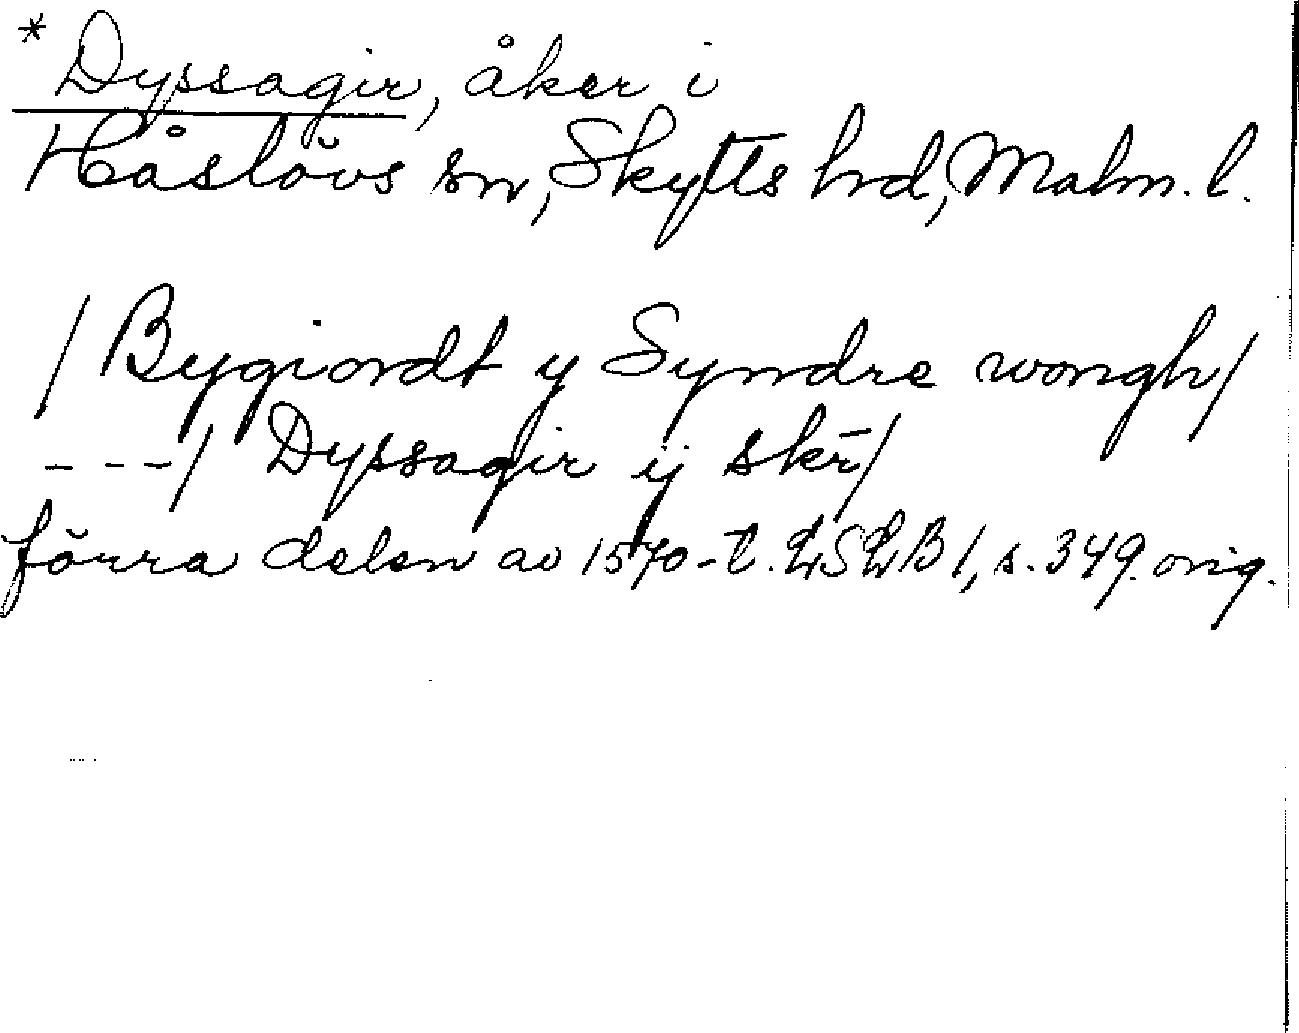 * Dyssagir, åker i
Håslövs sn, Skytts hrd, Malm. l.
/ Bygiordt y Syndre wongh/
---/ Dyssagir ij skr̄/
förra delen av 1570-t. LSLB 1, s. 349. orig.